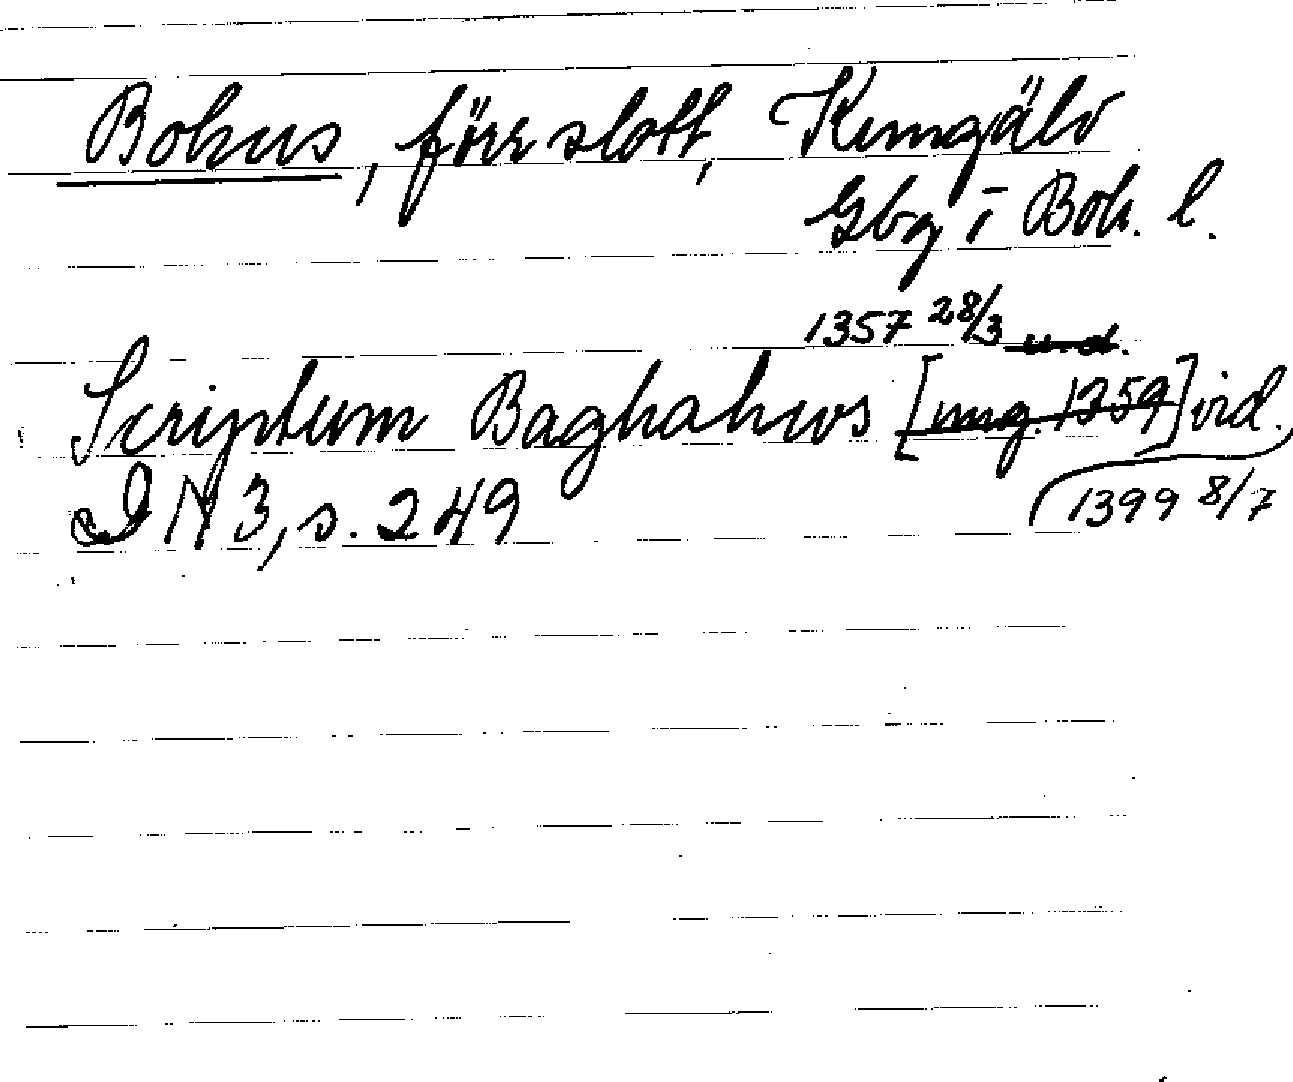 Bohus, förr slott, Kungälv
Gbg i Boh. l.
1357 28/3 u.d.
Scriptum Baghahws [ung. 1359] vid.
1399 8/7
DN 3, s. 249